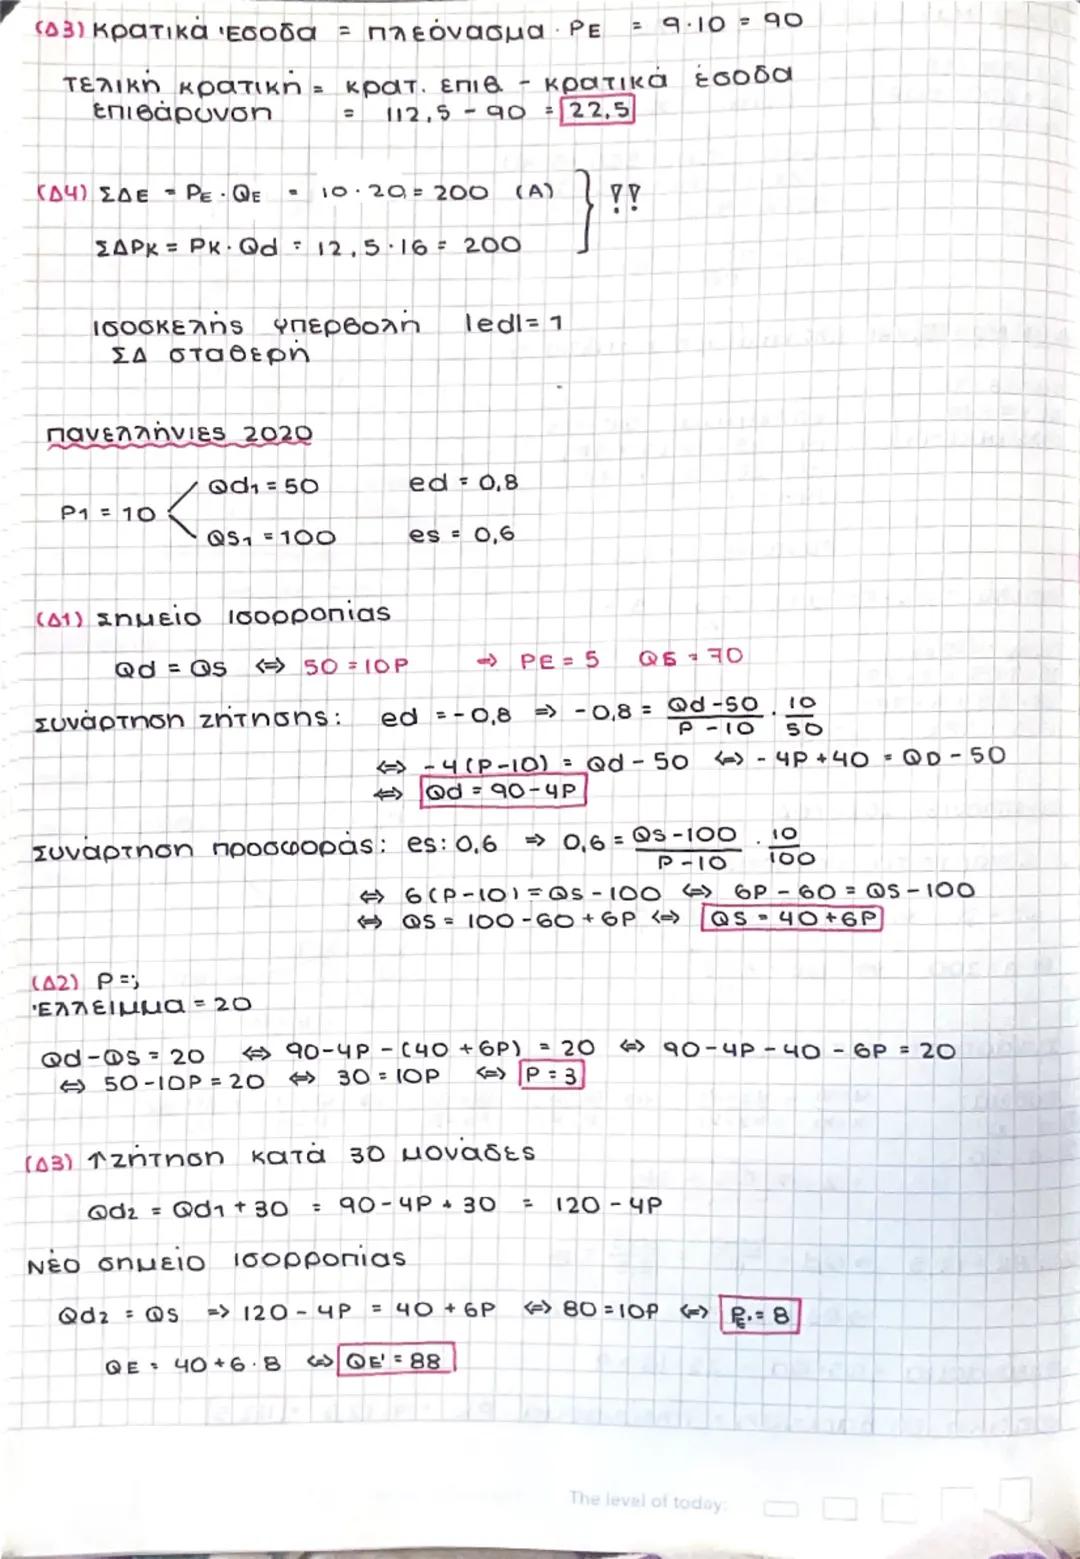 (Δ3) Κρατικά Έσοδα = πλεόνασμα · PE = 9·10 = 90
Τελική κρατική = κρατ. επιβ - κρατικά έσοδα
επιβάρυνση = 112,5 - 90 = 22,5
(Δ4) ΣΔΕ = PE · QE = 10·20 = 200 (Α)
!!
ΣΔΡΚ = PK · Qd = 12,5·16 = 200
Ισοσκελής Υπερβολή |ed|= 1
ΣΔ σταθερή
Πανελλήνιες 2020
Qd1 = 50 ed = 0,8
P1 = 10
QS1 = 100 es = 0,6
(Δ1) Σημείο Ισορροπίας
Qd = QS ⇔ 50 = 10P ⇒ PE = 5 QE = 70
Συνάρτηση ζήτησης: ed = -0,8 ⇒ -0,8 = Qd-50/P-10 · 10/50
⇔ -4(P-10) = Qd - 50 ⇔ -4P+40 = QD-50
⇔ Qd = 90-4P
Συνάρτηση προσφοράς: es: 0,6 ⇒ 0,6 = QS-100/P-10 · 10/100
⇔ 6(P-10) = QS-100 ⇔ 6P-60 = QS-100
⇔ QS = 100-60+6P ⇔ QS = 40+6P
(Δ2) P =;
Έλλειμμα = 20
Qd-QS = 20 ⇔ 90-4P-(40+6P) = 20 ⇔ 90-4P-40-6P = 20
⇔ 50-10P = 20 ⇔ 30 = 10P ⇔ P = 3
(Δ3) ↑ζήτηση κατά 30 μονάδες
Qd2 = Qd1+30 = 90-4P+30 = 120-4P
Νέο σημείο ισορροπίας
Qd2 = QS => 120-4P = 40+6P ⇔ 80=10P ⇔ PE' = 8
QE = 40+6·8 ⇔ QE' = 88
The level of today: